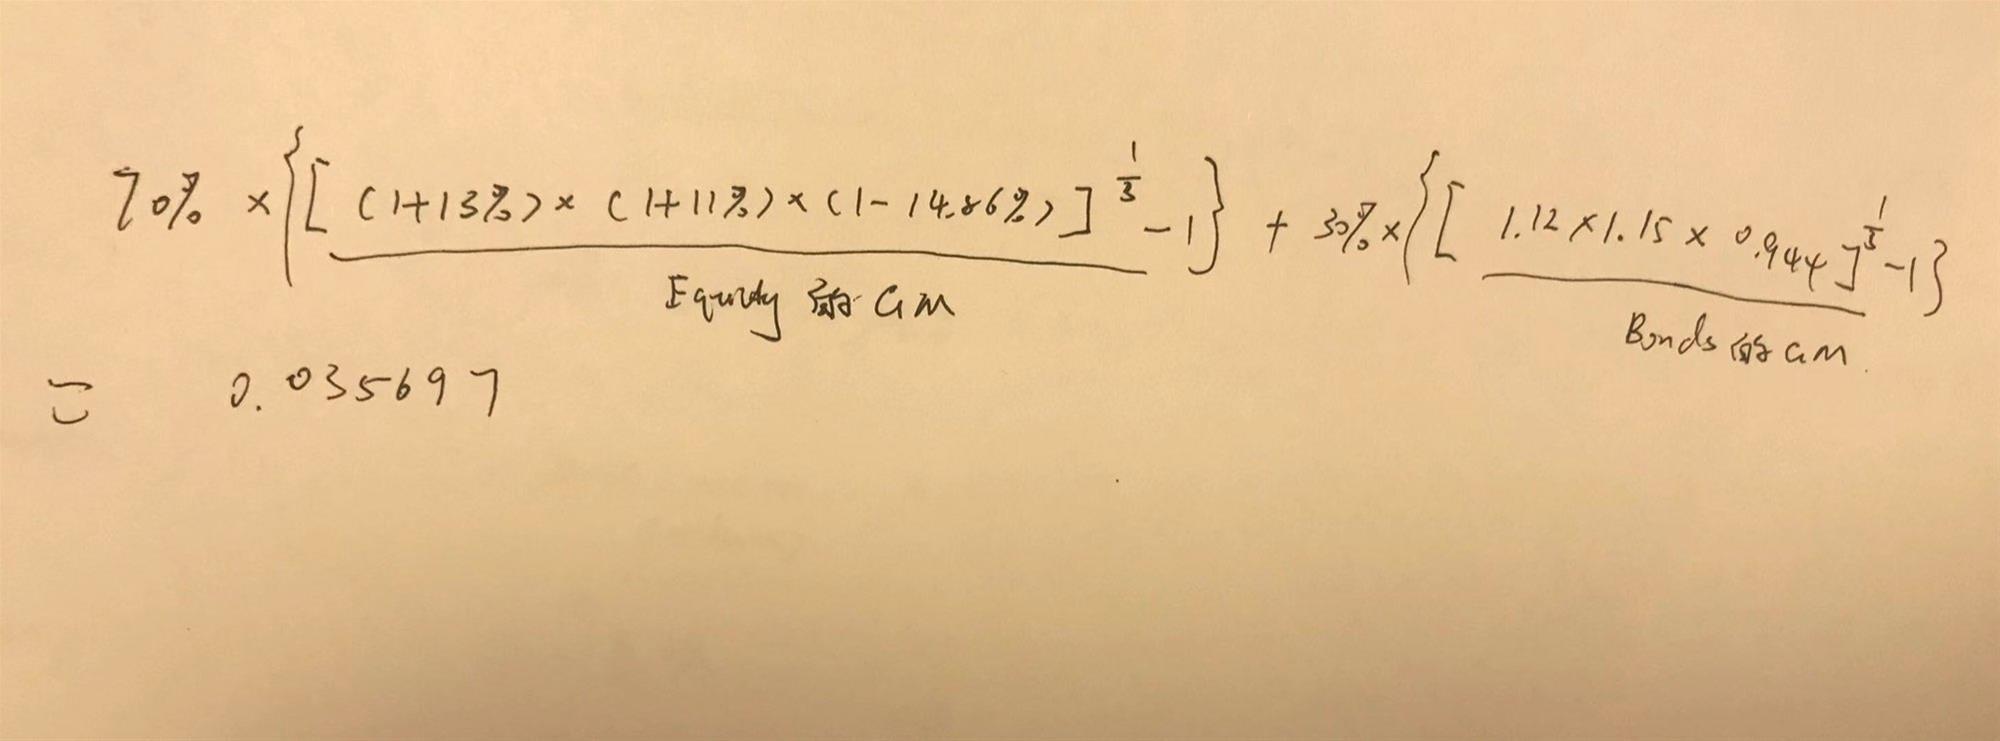 70% × {[(1+13%)×(1+11%)×(1-14.86%)]^{1/3} -1} + 30%×{[1.12×1.15×0.944]^{1/3} -1}
Equity 的 GM
Bonds 的 GM.
= 0.035697